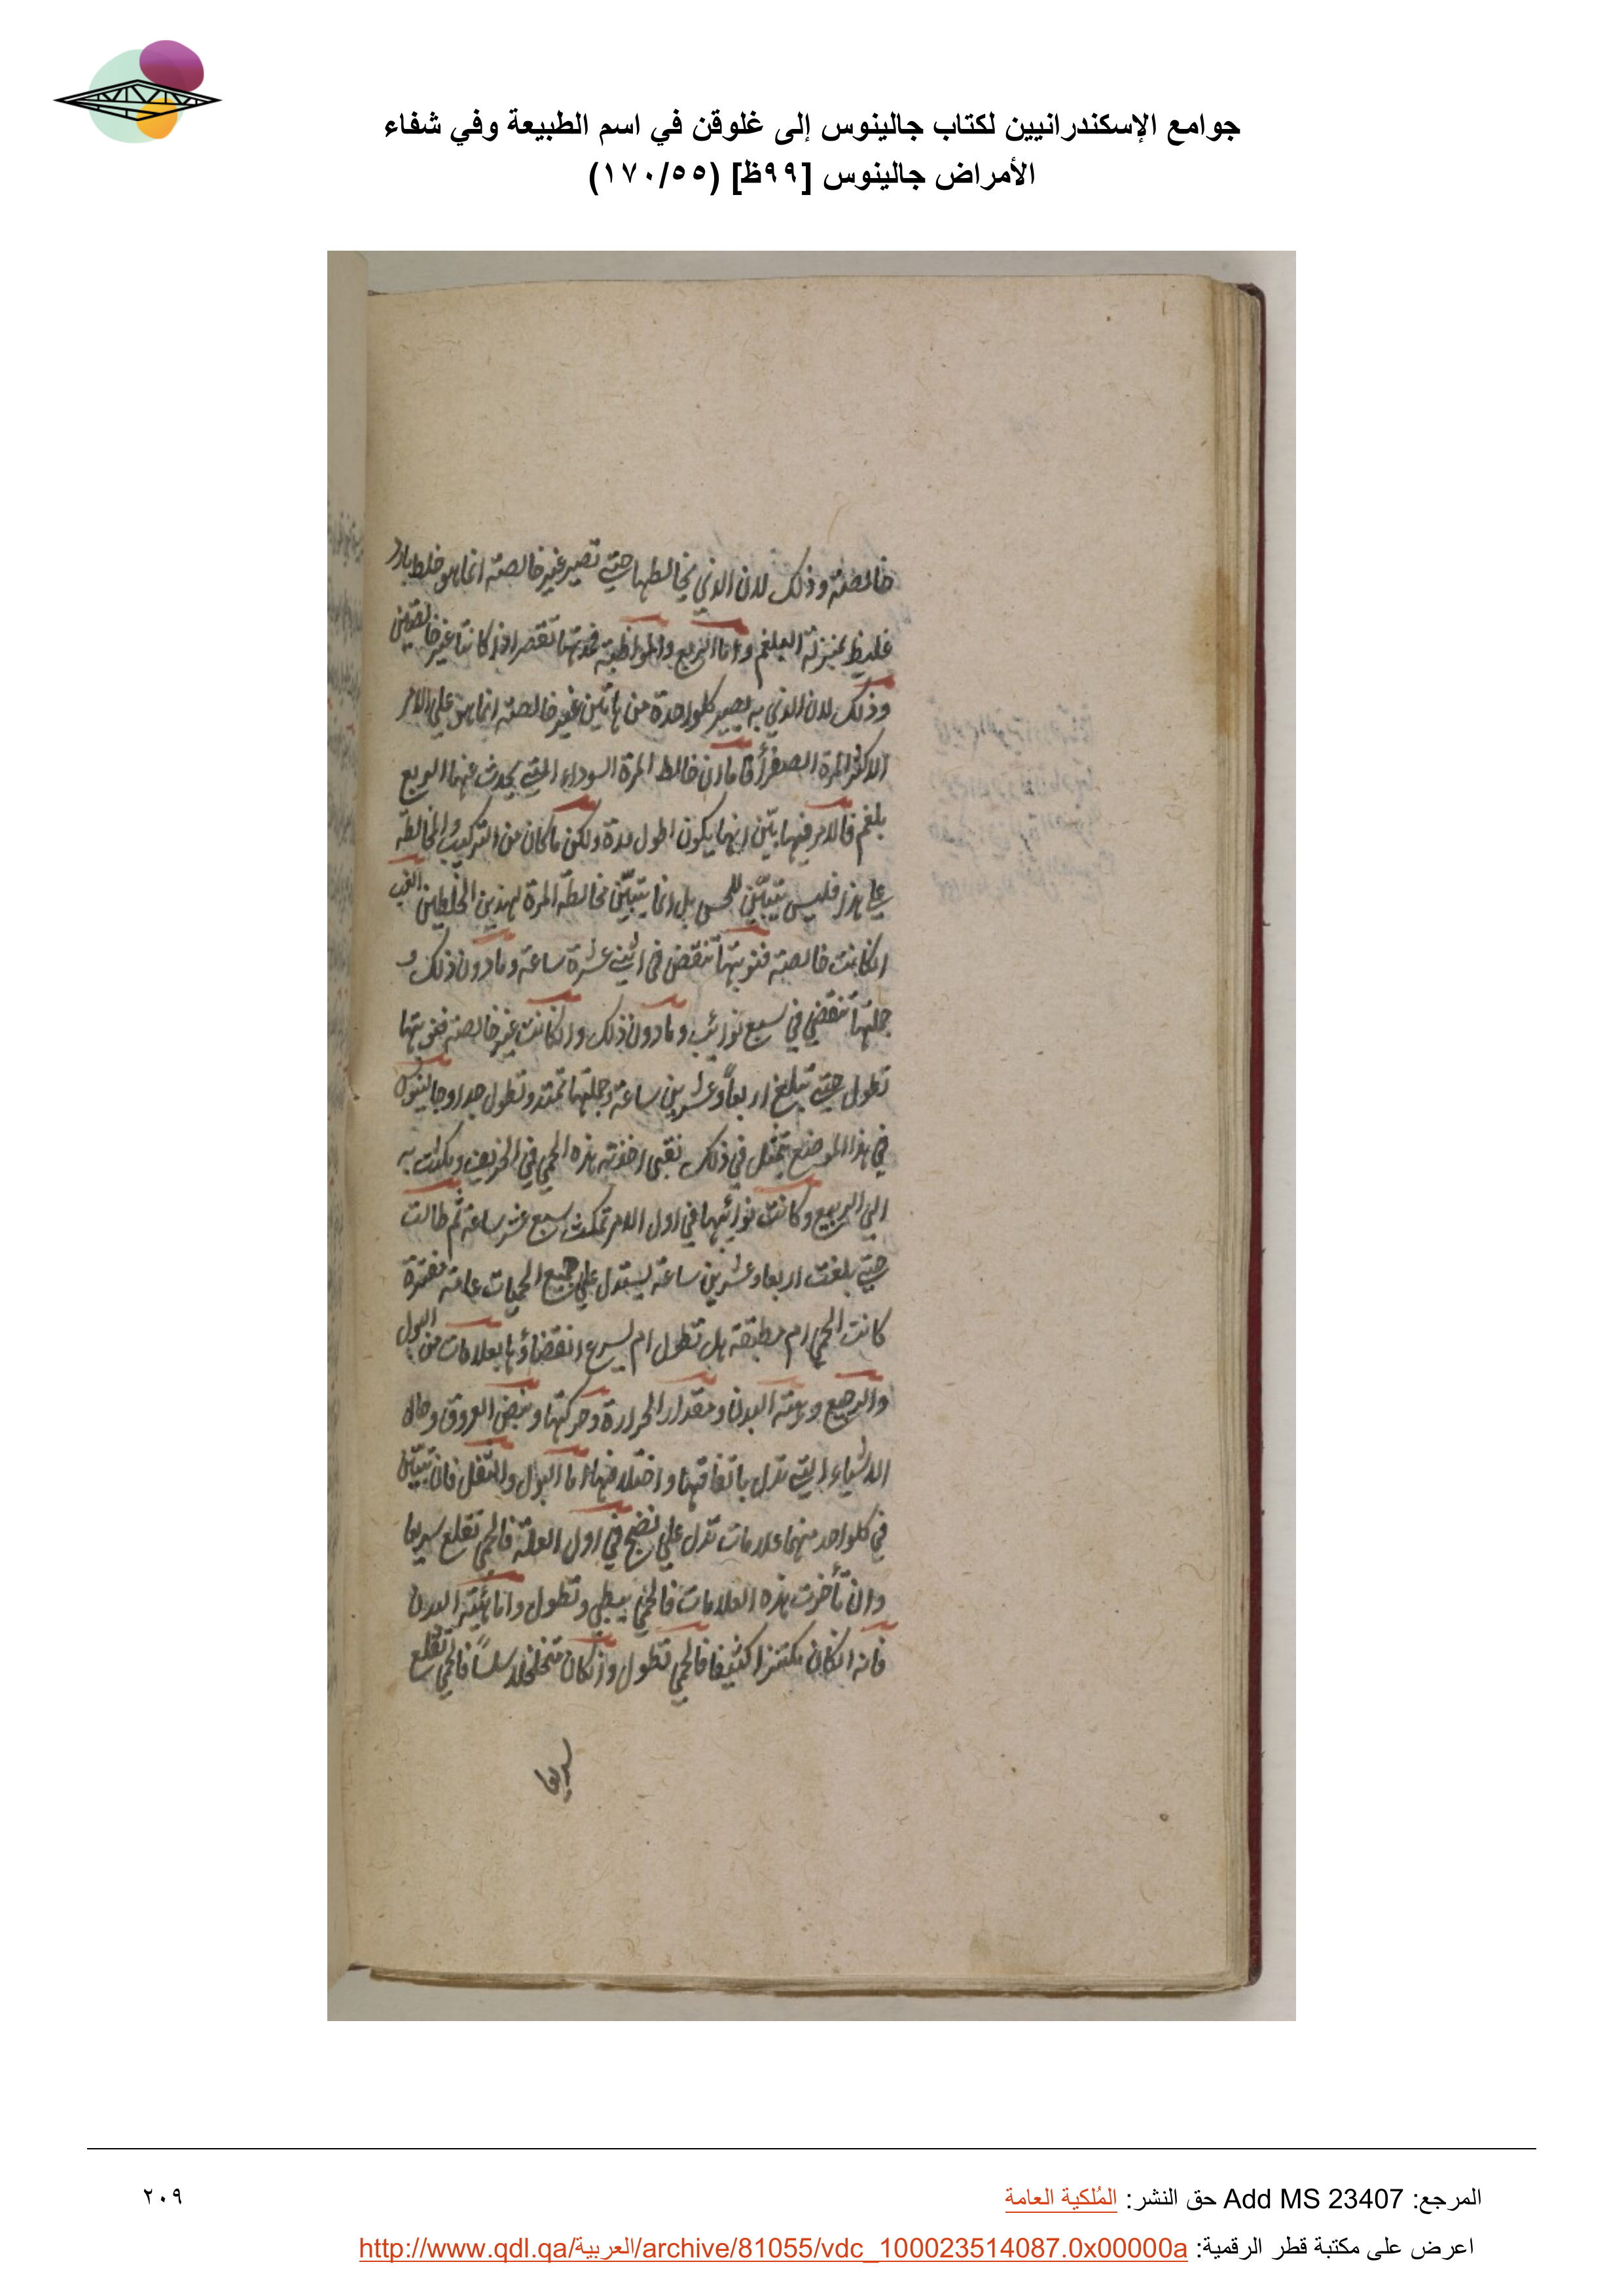 جوامع الإسكندرانيين لكتاب جالينوس إلى غلوقن في اسم الطبيعة وفي شفاء
الأمراض جالينوس [٩٩ظ] (١٧٠/٥٥)
خالصته وذلك لان الذي يخالطها حتى تصير غير خالصته انما هو خلط بارد
غليظ بمنزلة البلغم واما الربع والمواظبته فمدتهما تقصر اذا كانتا غير خالصتين
وذلك لان الذي به يصير كلواحدة من هاتين غير خالصته انما هو علي الامر
الاكثر المرة الصفرأ فاما ان خالط المرة السوداء التي يحدث عنها الربع
بلغم فالامر فيها بيّن انها يكون اطول مدة ولكن ما كان من التركيب والمخالطة
علي هذا فليس يتبيّن للحس بل انما يتبيّن مخالطة المرة لهذين الخلطين الغب
انكانت خالصته فنوبتها تنقضى فى اثنى عشرة ساعته ومادون ذلك و
جملتها تنقضي في سبع نوائب ومادون ذلك وانكانت غير خالصته فنوبتها
تطول حتى تبلغ اربعاً وعشرين ساعته وجملتها تمتد وتطول جدا وجالينوس
في هذا الموضع يتمثل في ذلك بفتى اخذته هذه الحمي في الخريف ومكثت به
الي الربيع وكانت نوائبها في اول الامر تمكث سبع عشر ساعته ثم طالت
حتى بلغت اربعا وعشرين ساعته يستدل علي جميع الحميات عامته مفترة
كانت الحمي ام مطبقته هل تطول ام يسرع انقضاؤها بعلامات من البول
والرجيع وهيئته البدن ومقدار الحرارة وحركتها ونبض العروق وحال
الاشياء التي تدل باتفاقها واختلافها اما البول والثفل فان تبيّن
في كلواحد منهما علامات تدل علي نضج في اول العلة فالحمي تقلع سريعا
وان تأخرت هذه العلامات فالحمي يبطي وتطول واما هيئته البدن
فانه انكان مكتنزا كثيفا فالحمي تطول وانكان متخلخلا سلساً فالحمي تقلع
سريعا
المرجع: Add MS 23407 حق النشر: المُلكية العامة
٢٠٩
اعرض على مكتبة قطر الرقمية: http://www.qdl.qa/العربية/archive/81055/vdc_100023514087.0x00000a